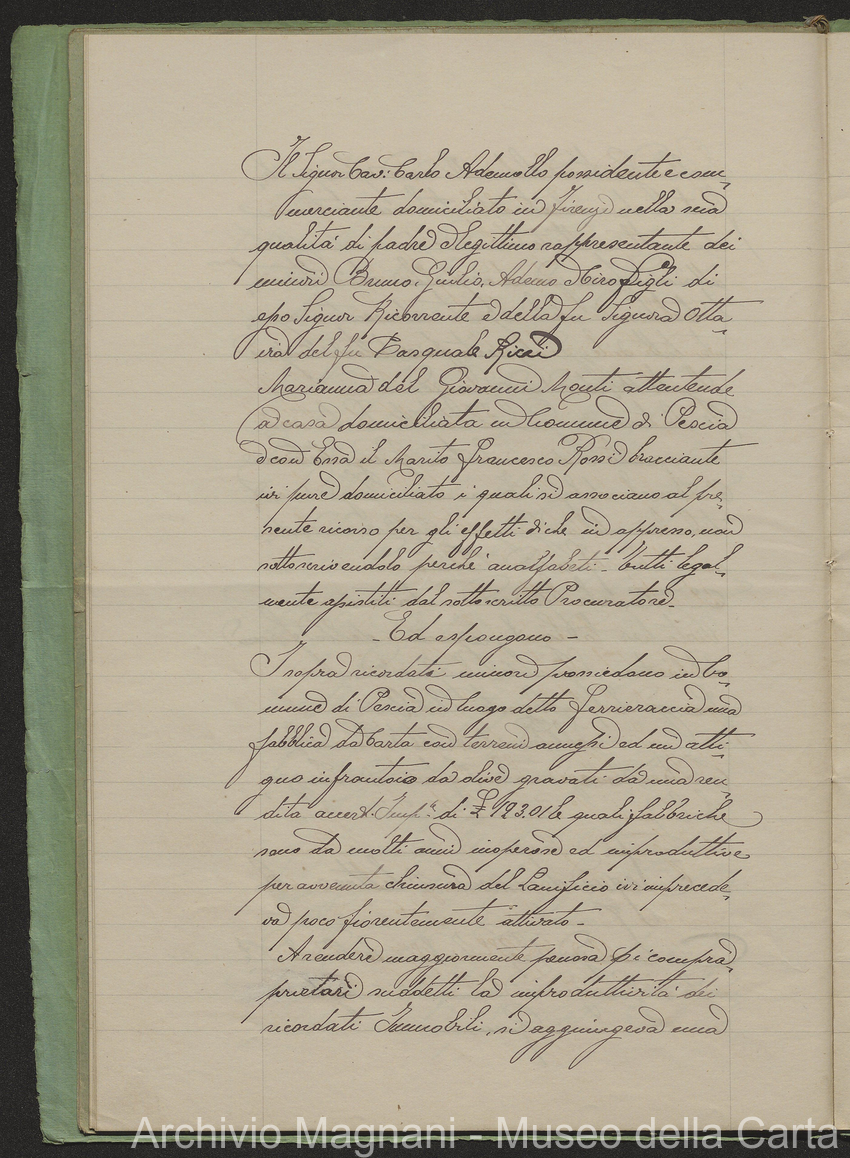 Il Signor Cav: Carlo Ademollo possidente e com-
merciante domiciliato in Firenze nella sua
qualità di padre e legittimo rappresentante dei
minori Bruno, Giulio, Ademo e Ciro figli di
esso Signor Ricorrente e della fu Signora Otta-
via del fu Pasquale Ricci
Marianna del Giovanni Monti attentende
a casa domiciliata in Comune di Pescia
e con Essa il Marito Francesco Rossi bracciante
ivi pure domiciliato i quali si associano al pre-
sente ricorso per gli effetti di che in appresso, non
sottoscrivendolo perché analfabeti - Tutti legal-
mente assistiti dal sottoscritto Procuratore -
- Ed espongono -
I sopra ricordati minori possiedono in Co-
mune di Pescia in luogo detto Ferrieraccia una
fabbrica da Carta con terreni annessi ed un atti-
guo infrantoio da olive gravati da una ren-
dita accert. Imp.le di £ 193.01 le quali fabbriche
sono da molti anni inoperose ed improduttive
per avvenuta chiusura del Lanificio ivi in precede-
va poco fiorentemente attivato -
A rendere maggiormente penosa pei compro-
prietari suddetti la improduttività dei
ricordati Immobili, si aggiungeva una
Archivio Magnani - Museo della Carta